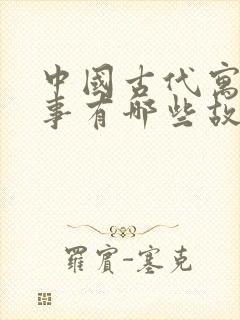 中國古代寓
事有哪些故
羅賓-塞克